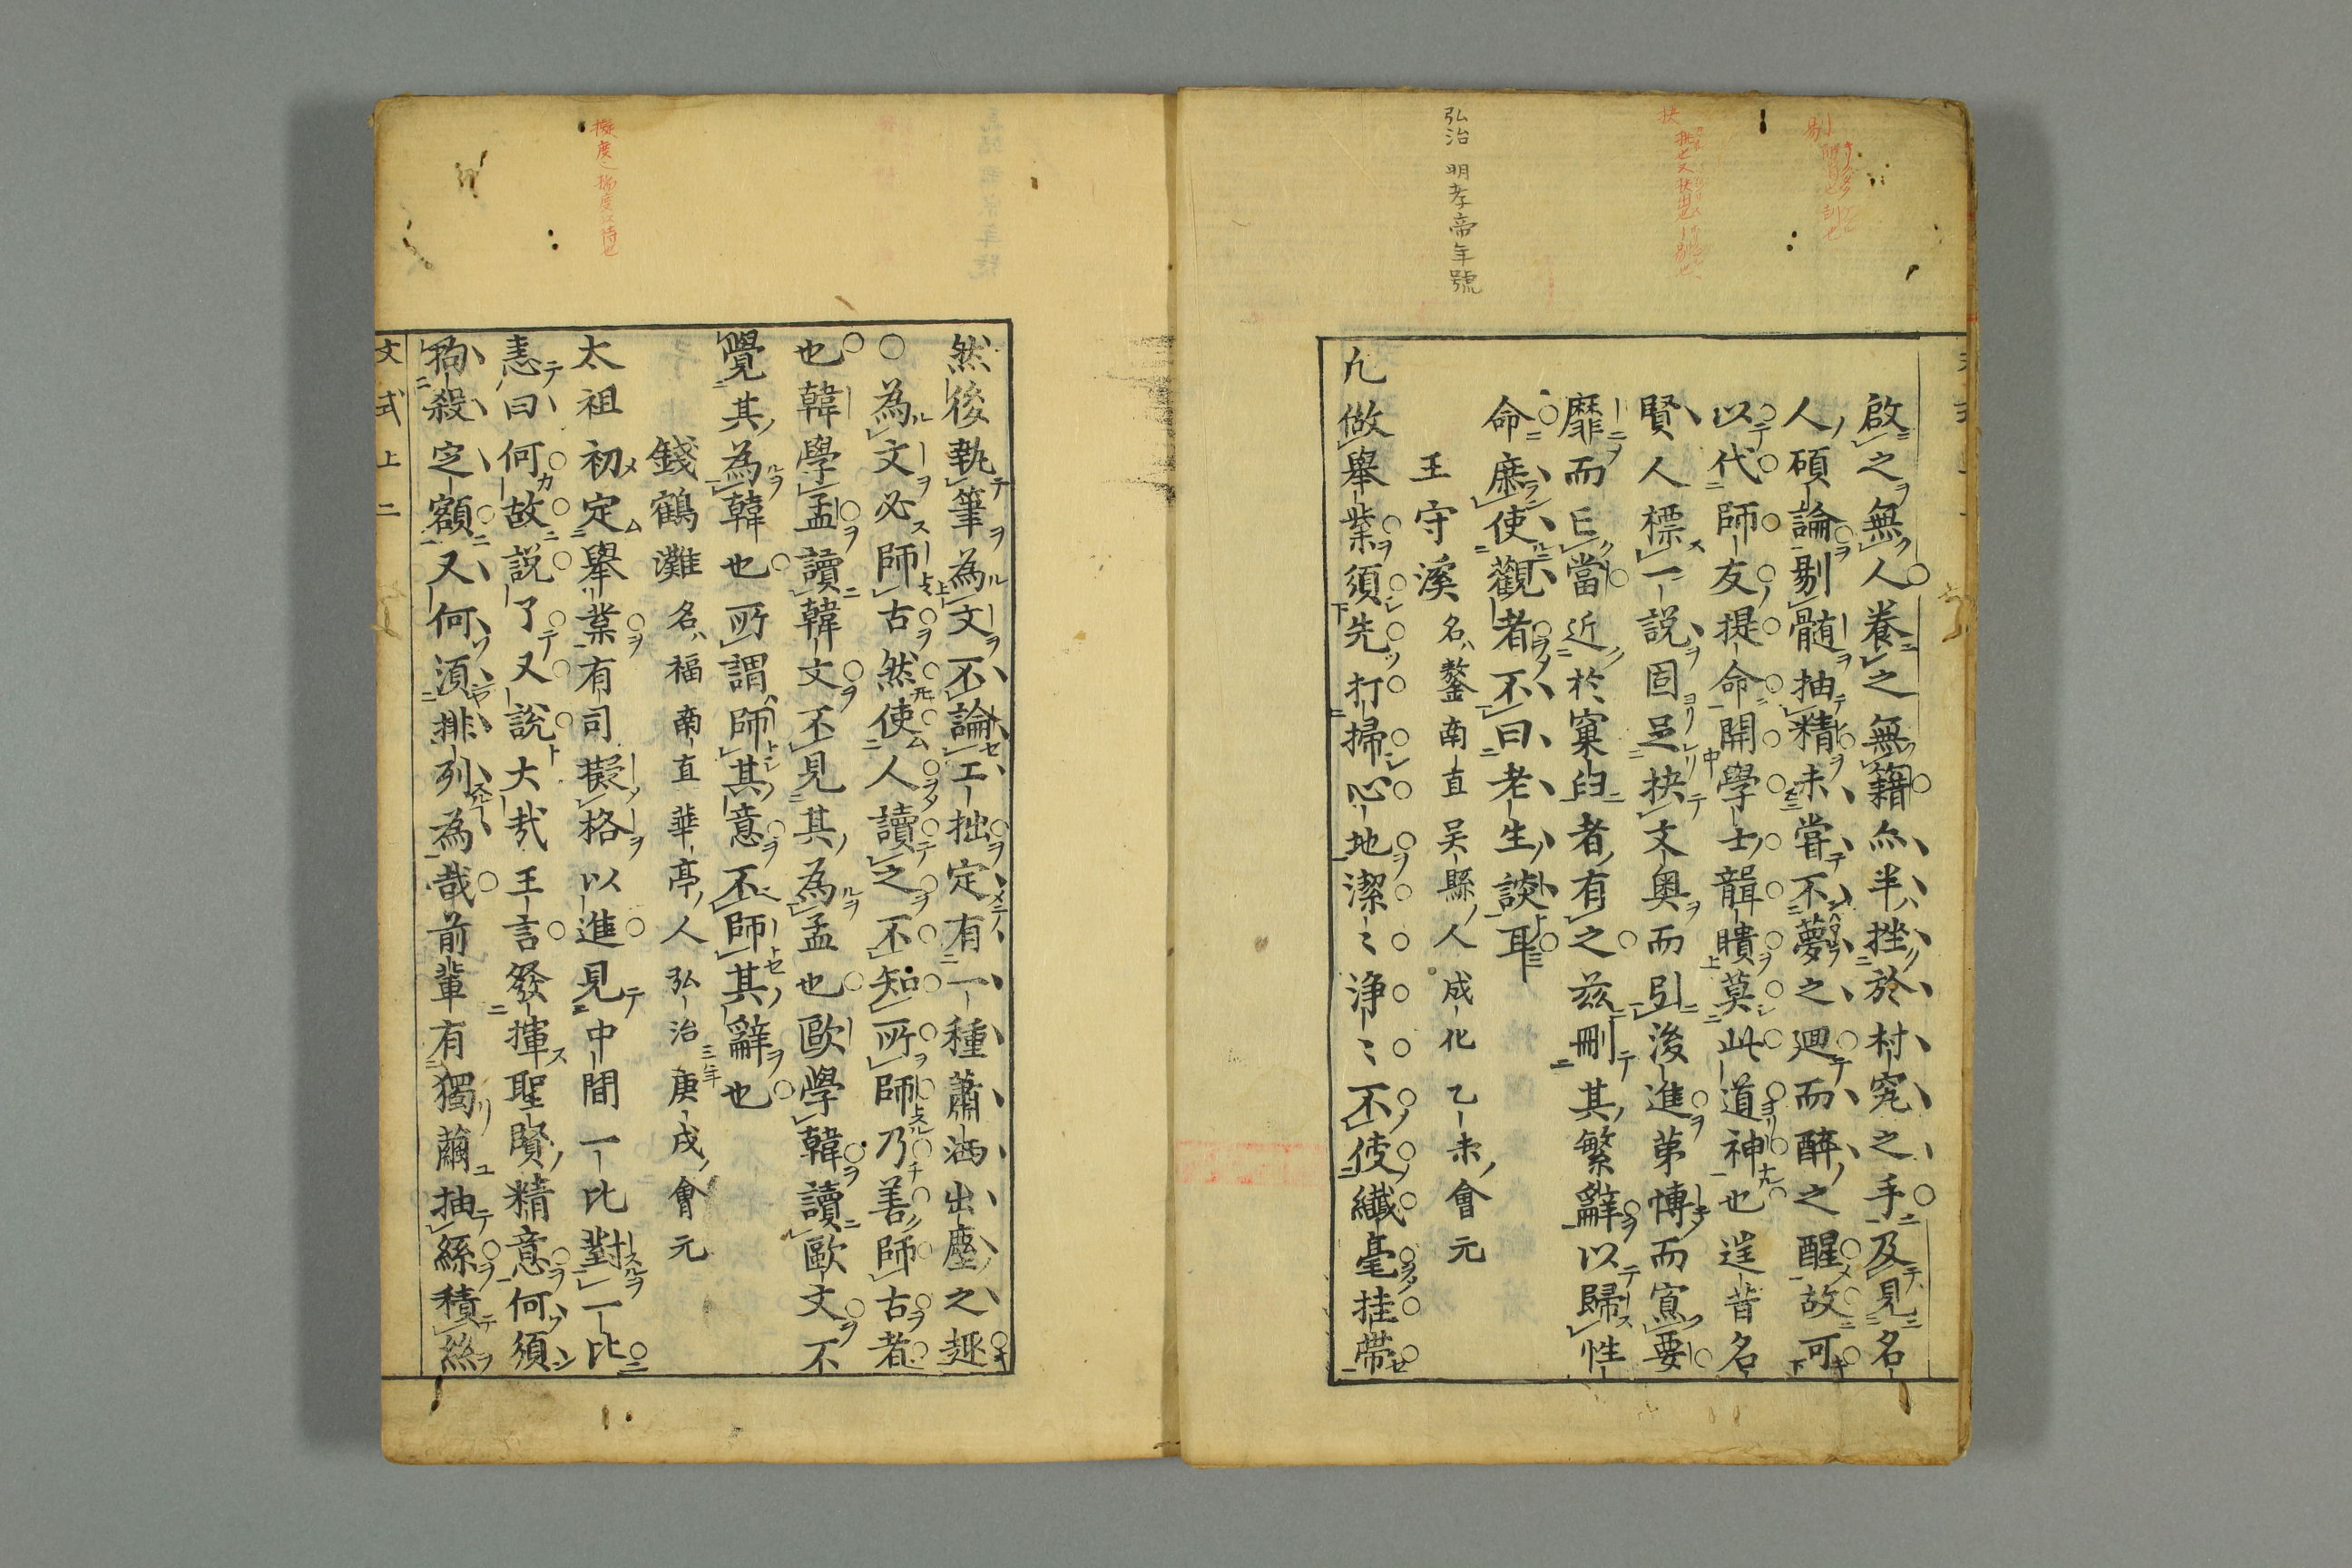 弘治 明孝帝年號
啟之無人養之無籍亦半挫於村究之手及見名
人碩論剔髄抽精未甞不夢之迴而醉之醒故可
以代師友提命開學士韻瞶莫此道神也逞昔名
賢人標一説固足抉文奥而引後進苐博而寡要
靡而匕當近於窠臼者有之茲刪其繁辭以歸性
命庶使觀者不曰老生談耳
王守溪 名鏊南直吴縣人成化乙未會元
凢做舉業須先打掃心地潔〻浄〻不使纎毫挂帶
擬度之揣度以待也
然後執筆為文不論工拙定有一種蕭洒出塵之趣
○為文必師古然使人讀之不知所師乃善師古者
也韓學孟讀韓文不見其為孟也歐學韓讀歐文不
覺其為韓也所謂師其意不師其辭也
錢鶴灘 名福南直華亭人弘治三年庚戌會元
太祖初定舉業有司擬格以進見中間一比對一比
恚曰何故説了又說大哉王言發揮聖賢精意何須
拘殺定額又何須排列為哉前輩有獨繭抽絲積絲
文式上二